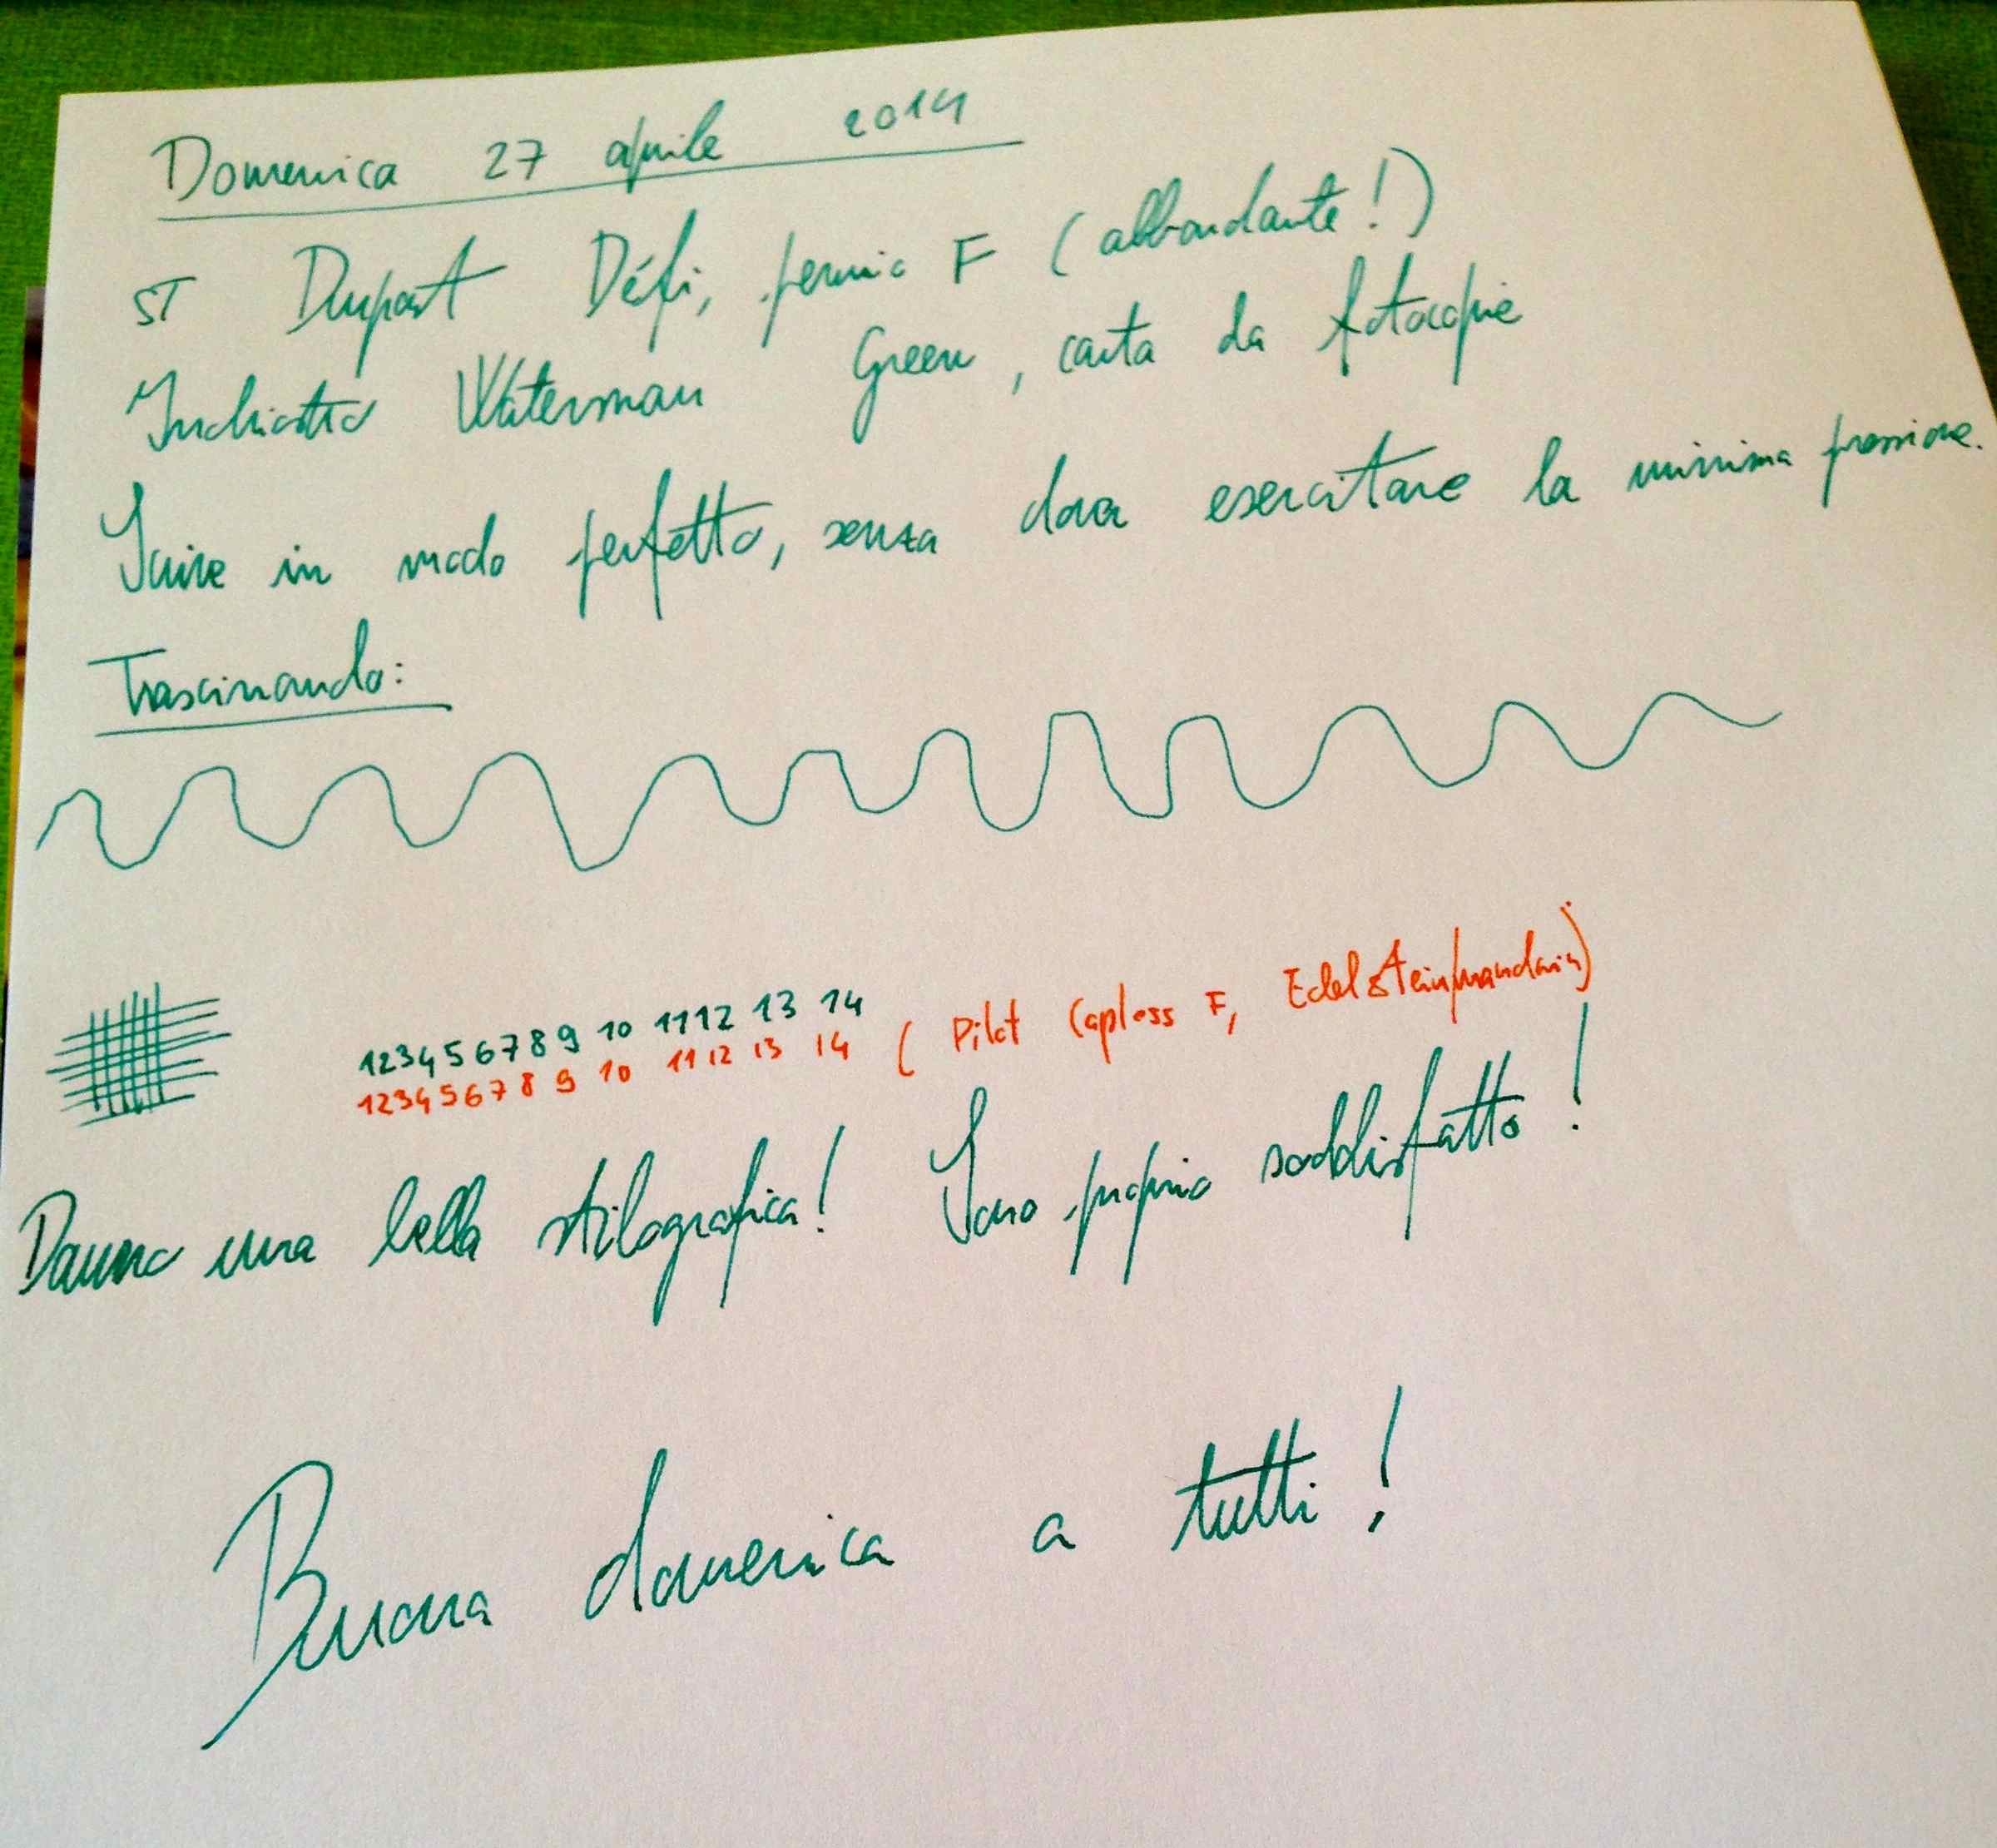 Domenica 27 aprile 2014
ST Dupont Défi, pennino F (abbondante!)
Inchiostro Waterman Green, carta da fotocopie
Scrive in modo perfetto, senza dover esercitare la minima pressione.
Trascinando:
1 2 3 4 5 6 7 8 9 10 11 12 13 14
1 2 3 4 5 6 7 8 9 10 11 12 13 14 ( Pilot Capless F, Edelstein mandarin)
Davvero una bella stilografica! Sono proprio soddisfatto!
Buona domenica a tutti!